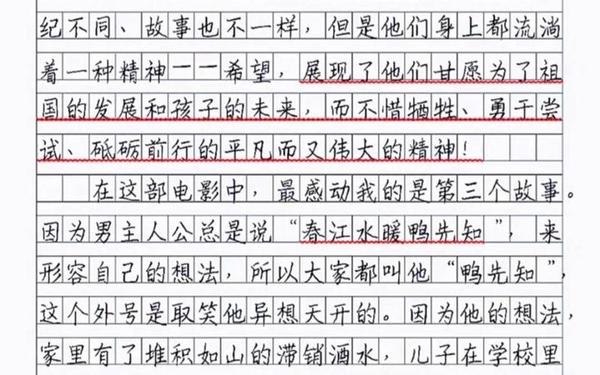 纪不同、故事也不一样，但是他们身上都流淌
着一种精神一一希望，展现了他们甘愿为了祖
国的发展和孩子的未来，而不惜牺牲、勇于尝
试、砥砺前行的平凡而又伟大的精神！
在这部电影中，最感动我的是第三个故事。
因为男主人公总是说“春江水暖鸭先知”，来
形容自己的想法，所以大家都叫他“鸭先知”，
这个外号是取笑他异想天开的。因为他的想法，
家里有了堆积如山的滞销酒水，儿子在学校里